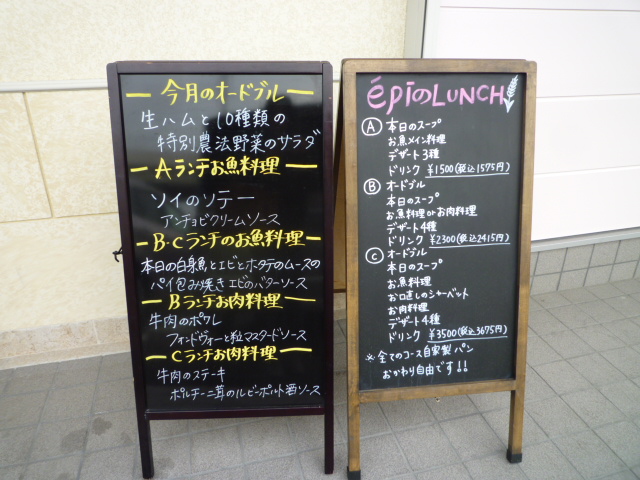 今月のオードブル
生ハムと10種類の
特別農法野菜のサラダ
Aランチお魚料理
ソイのソテー
アンチョビクリームソース
B・Cランチのお魚料理
本日の白身魚とエビとホタテのムースの
パイ包み焼き エビのバターソース
Bランチお肉料理
牛肉のポワレ
フォンドヴォーと粒マスタードソース
Cランチお肉料理
牛肉のステーキ
ポルチーニ茸のルビーポルト酒ソース
épiのLUNCH
A 本日のスープ
お魚メイン料理
デザート3種
ドリンク ¥1500(税込1575円)
B オードブル
本日のスープ
お魚料理orお肉料理
デザート4種
ドリンク ¥2300(税込2415円)
C オードブル
本日のスープ
お魚料理
お口直しのシャーベット
お肉料理
デザート4種
ドリンク ¥3500(税込3675円)
※全てのコース自家製パン
おかわり自由です!!